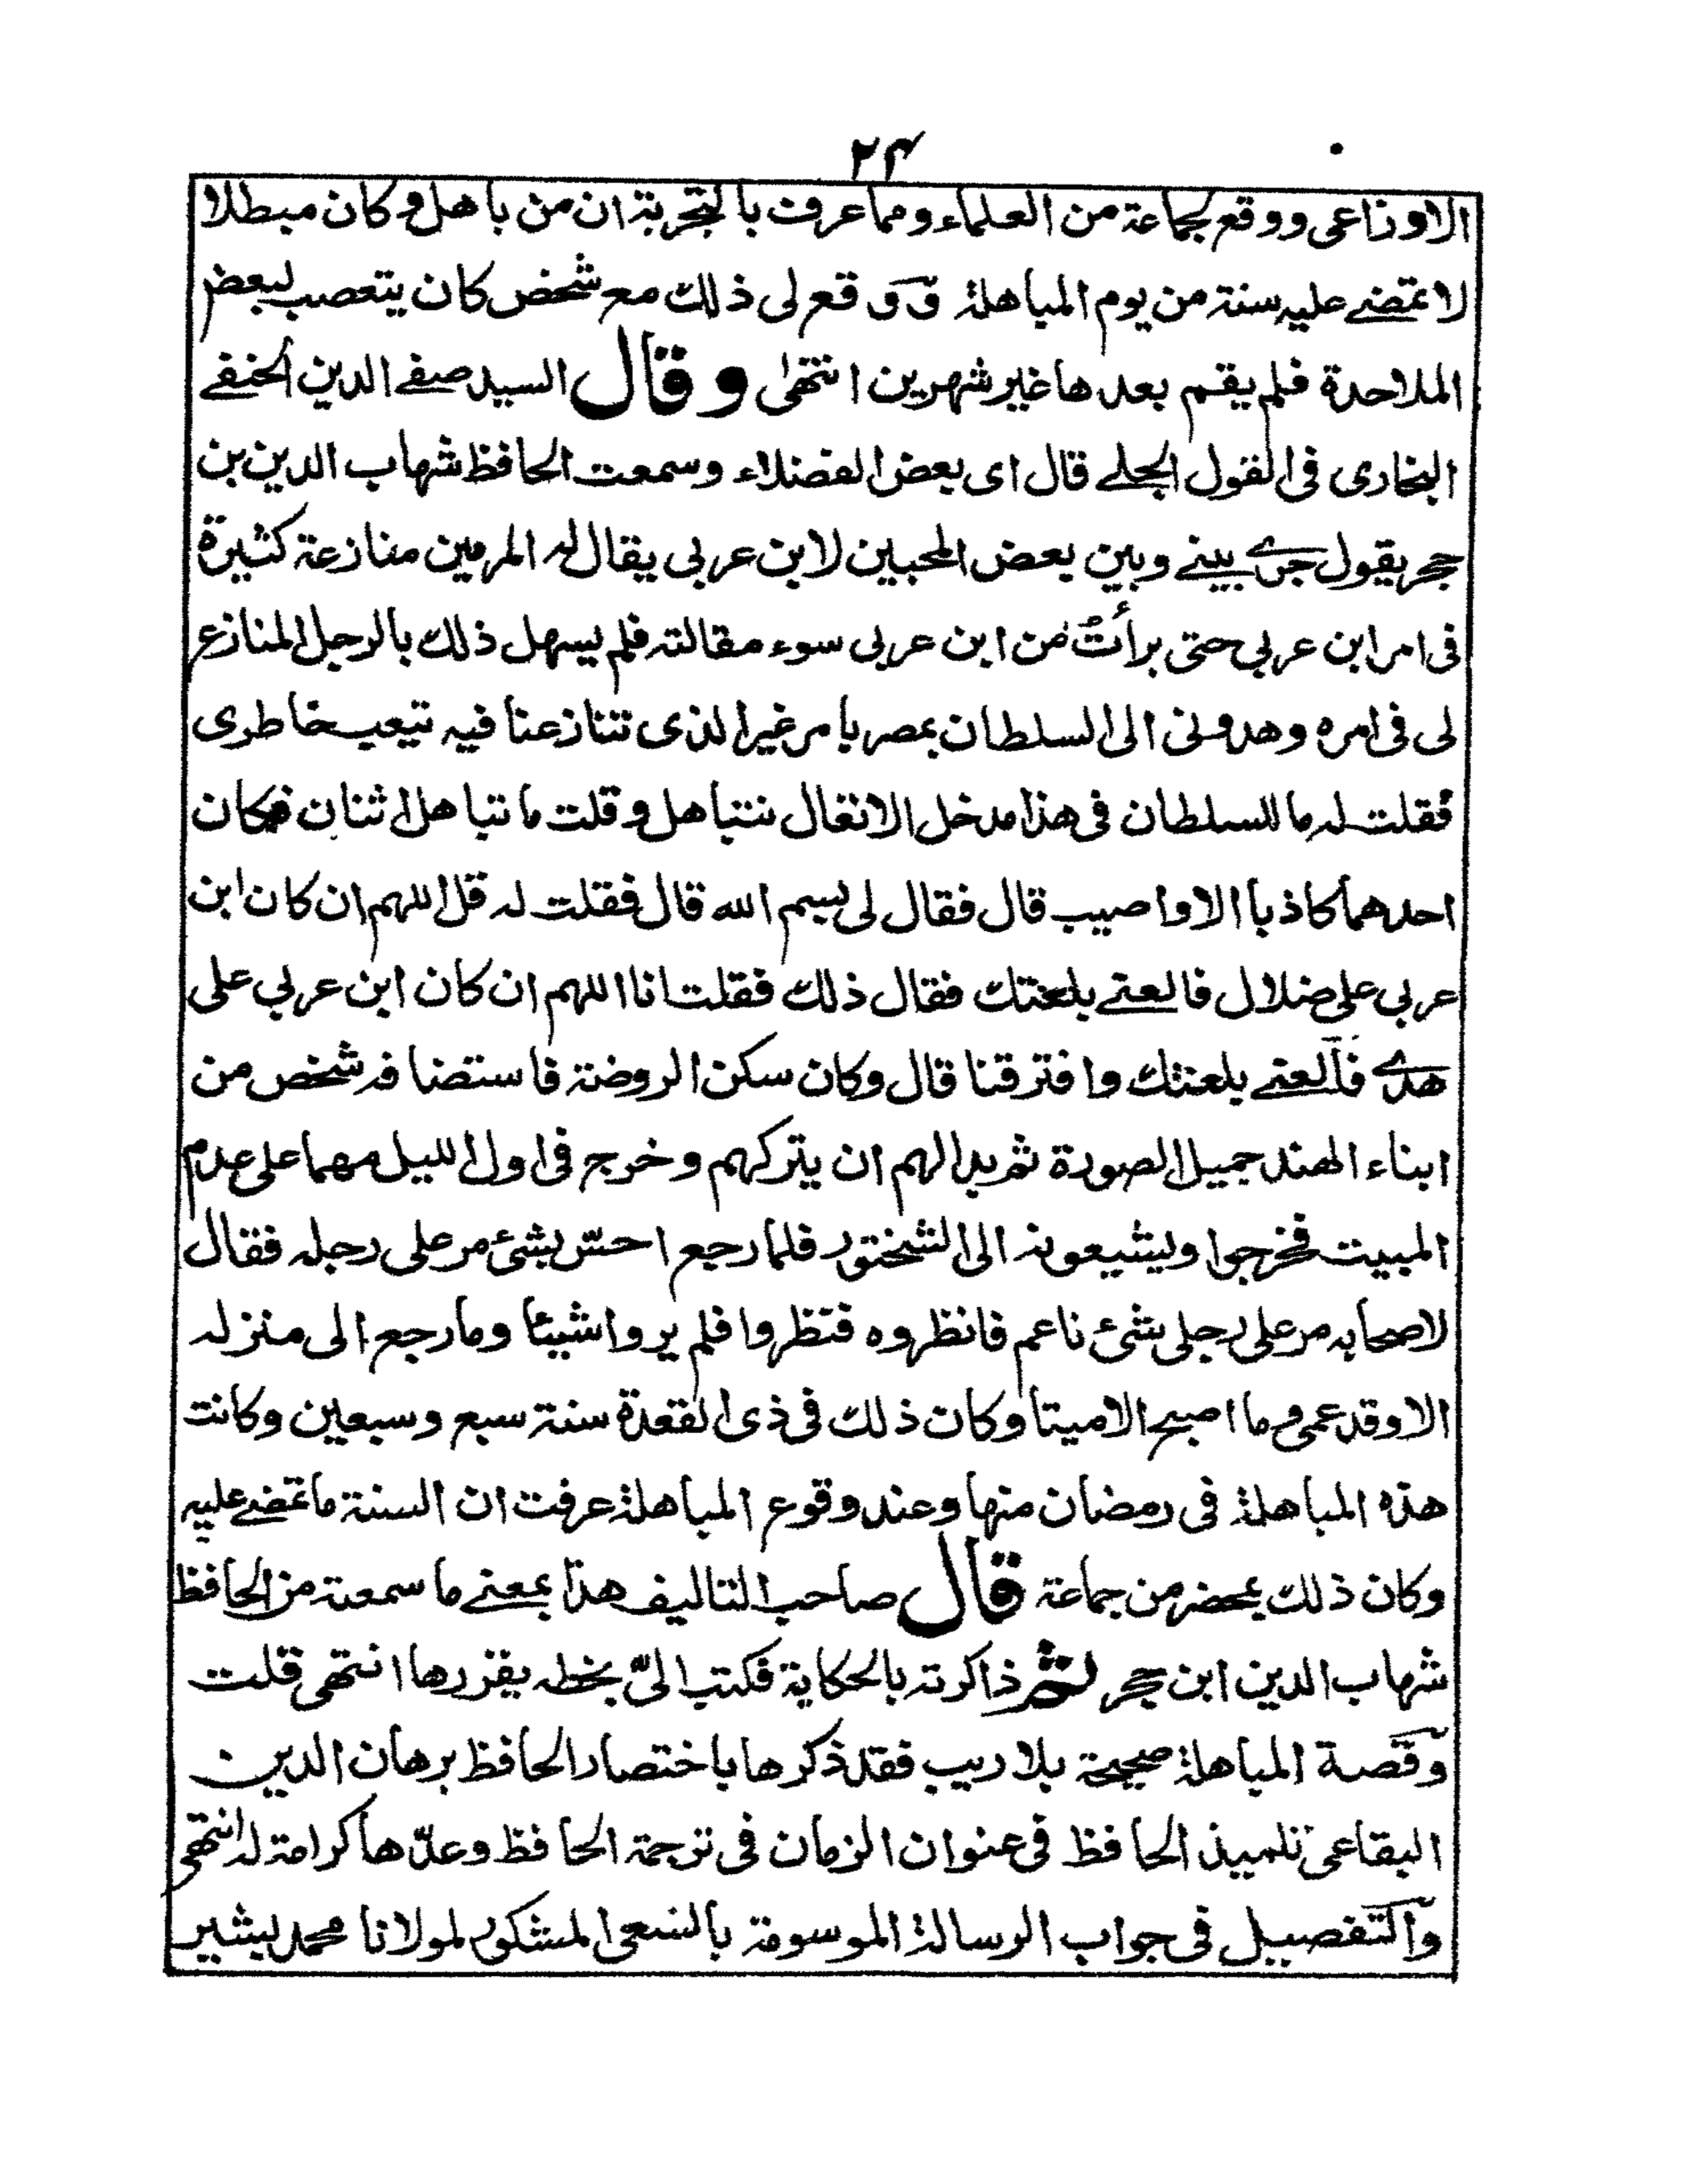 ٢٤
الاوزاعى ووقع لجماعة من العلماء ومما عرف بالتجربة ان من باهل وكان مبطلا
لا تمضے عليه سنة من يوم المباهلة ووقع لى ذلك مع شخص كان يتعصب لبعض
الملاحدة فلم يقم بعدها غير شهرين انتهى وقال السيد صفے الدين الحنفے
البخارى فى القول الجلے قال اى بعض الفضلاء وسمعت الحافظ شهاب الدين بن
حجر يقول جرے بينے وبين بعض المحبين لابن عربى يقال له المرمين منازعة كثيرة
فى امر ابن عربي حتى برأت من ابن عربى سوء مقالته فلم يسهل ذلك بالرجل المنازع
لى فى امره وهددنى الى السلطان بمصر بامر غير الذى تنازعنا فيه تيعب خاطرى
فقلت له ما للسلطان فى هذا مدخل الا تعال نتباهل وقلت ما تباهل اثنان فكان
احدهما كاذبا الا واصيب قال فقال لى بسم الله قال فقلت له قل اللهم ان كان ابن
عربي على ضلال فالعنے بلعنتك فقال ذلك فقلت انا اللهم ان كان ابن عربي على
هدے فالعنے بلعنتك وافترقنا قال وكان سكن الروضة فاستضافه شخص من
ابناء الهند جميل الصورة ثم بدا لهم ان يتركهم وخرج فى اول الليل مهما على عدم
المبيت فخرجوا ويشيعونه الى الشختور فلما رجع احسّ بشئ مر على رجله فقال
لاصحابه مر على رجلى شئ ناعم فانظروه فنظروا فلم يروا شيئا وما رجع الى منزله
الا وقد عمى وما اصبح الا ميتا وكان ذلك فى ذى القعدة سنة سبع وسبعين وكانت
هذه المباهلة فى رمضان منها وعند وقوع المباهلة عرفت ان السنة ما تمضے عليه
وكان ذلك بمحضر من جماعة قال صاحب التاليف هذا بمعنے ما سمعته من الحافظ
شهاب الدين ابن حجر ثم ذاكرته بالحكاية فكتب الىّ بخطه يقررها انتهى قلت
وقصة المباهلة صحيحة بلا ريب فقد ذكرها باختصار الحافظ برهان الدين
البقاعى تلميذ الحافظ فى عنوان الزمان فى ترجمة الحافظ وعدّها كرامة له انتهى
والتفصيل فى جواب الرسالة الموسومة بالسعى المشكور لمولانا محمد بشير